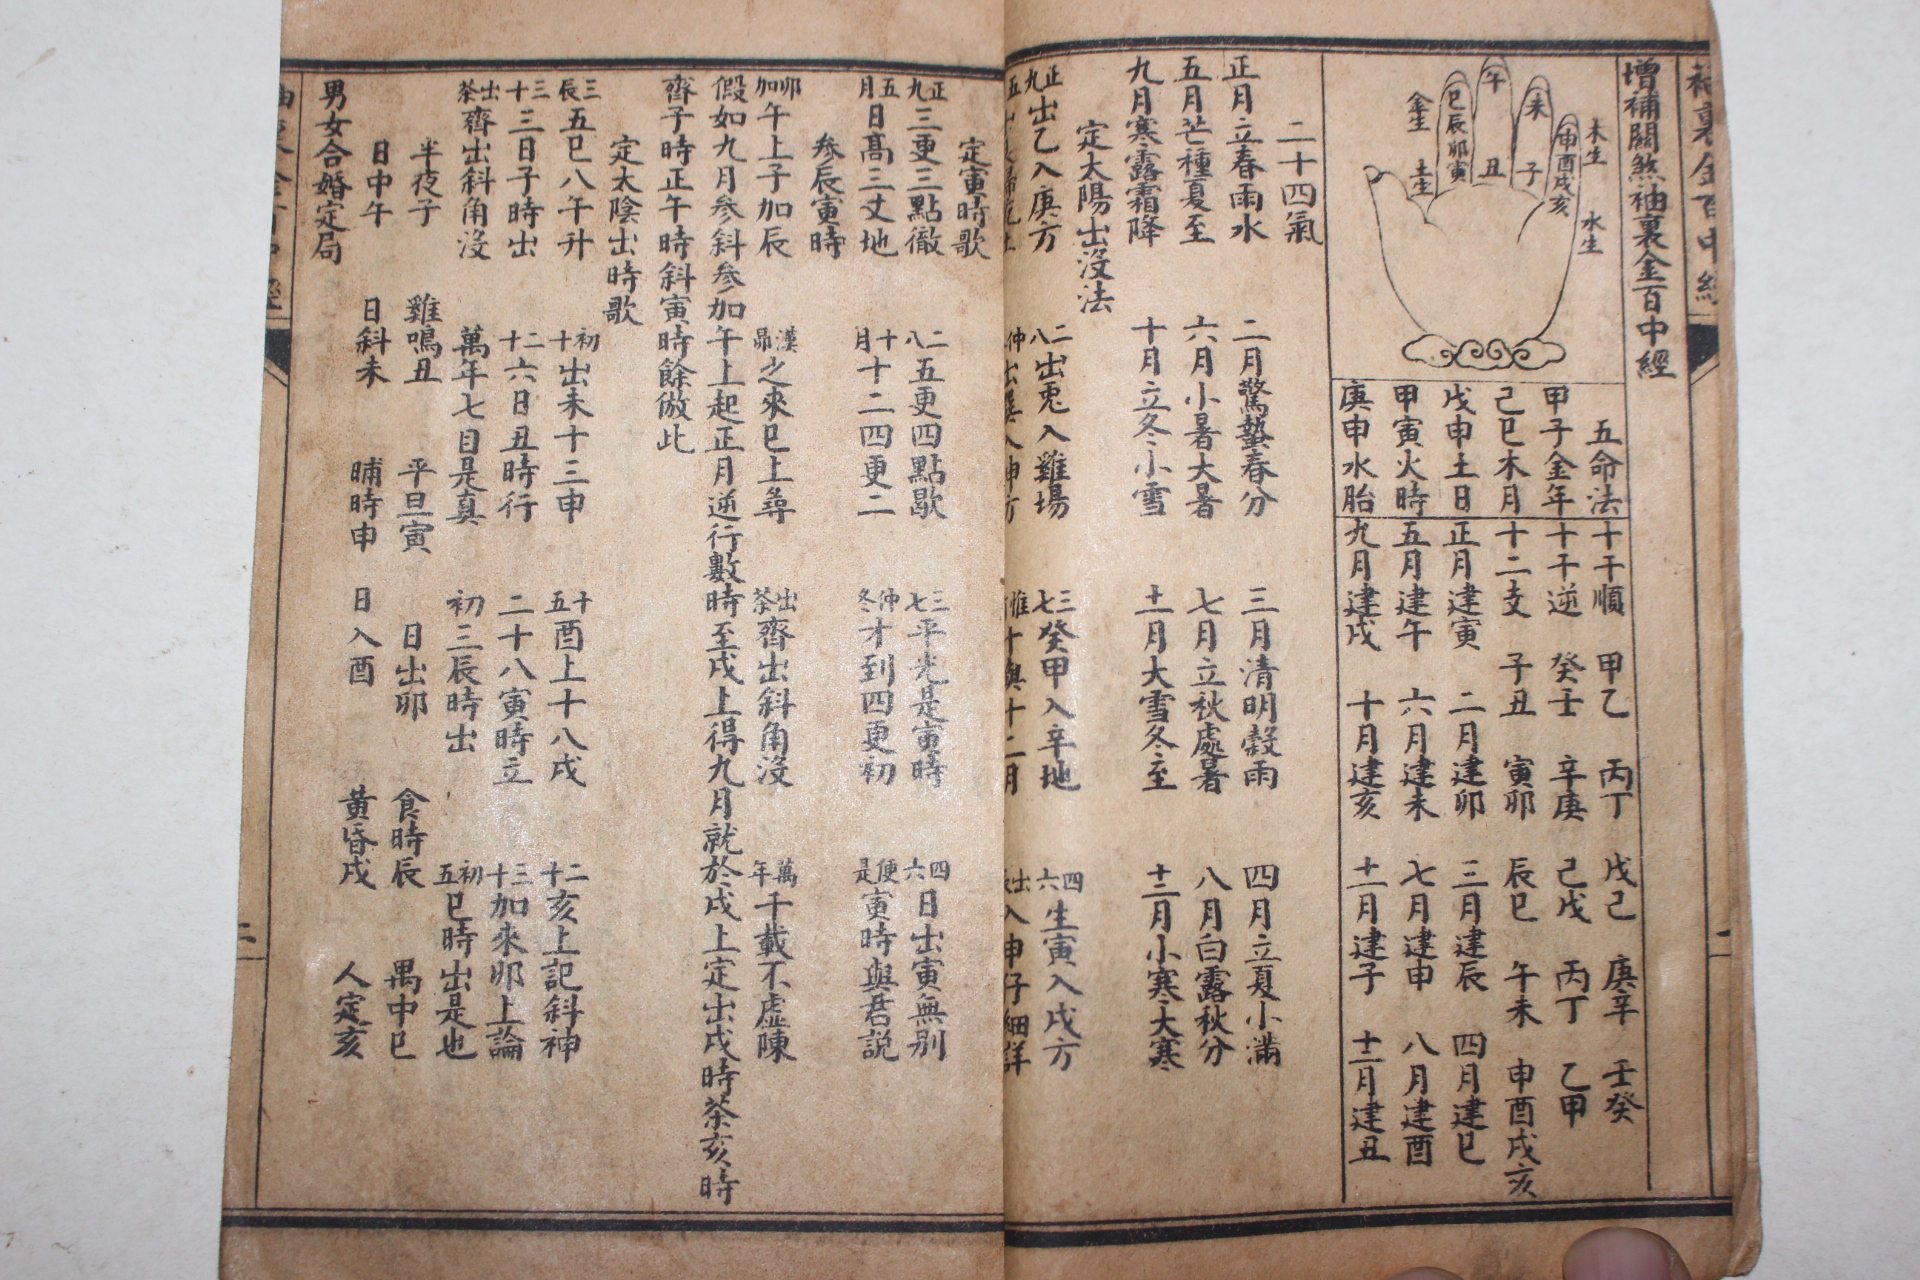 增補關煞袖裏金百中經
午
未
巳辰卯寅
申酉戌亥
丑
子
金生
土生
木生
水生
五命法
甲子金年
己巳木月
戊申土日
甲寅火時
庚申水胎
十干順 甲乙 丙丁 戊己 庚辛 壬癸
十干逆 癸壬 辛庚 己戊 丙丁 乙甲
十二支 子丑 寅卯 辰巳 午未 申酉戌亥
正月建寅 二月建卯 三月建辰 四月建巳
五月建午 六月建未 七月建申 八月建酉
九月建戌 十月建亥 十一月建子 十二月建丑
二十四氣
正月立春雨水 二月驚蟄春分 三月清明穀雨 四月立夏小滿
五月芒種夏至 六月小暑大暑 七月立秋處暑 八月白露秋分
九月寒露霜降 十月立冬小雪 十一月大雪冬至 十二月小寒大寒
定太陽出沒法
正九出乙入庚方 二八出兎入雞場 三七癸甲入辛地 四六生寅入戌方
入申仔細詳
定寅時歌
正九三更三點徹 二八五更四點歇 三七平光是寅時 四六日出寅無別
五月日高三丈地 十月十二四更二 仲冬才到四更初 便是寅時與君説
參辰寅時
卯加午上子加辰 漢昴之來巳上尋 出茶齊出斜角沒 萬年千載不虛陳
假如九月參斜參加午上起正月逆行數時至戌上得九月就於戌上定出戌時茶亥時
齊子時正午時斜寅時餘倣此
定太陰出時歌
三辰五巳八午升 初十出未十三申 十五酉上十八戌 二十亥上記斜神
三十三日子時出 二十六日丑時行 二十八寅時立 三十加來卯上論
出茶齊出斜角沒 萬年七目是真 初三辰時出 初五巳時出是也
半夜子 雞鳴丑 平旦寅 日出卯 食時辰 禺中巳
日中午 日斜未 晡時申 日入酉 黃昏戌 人定亥
男女合婚定局
二